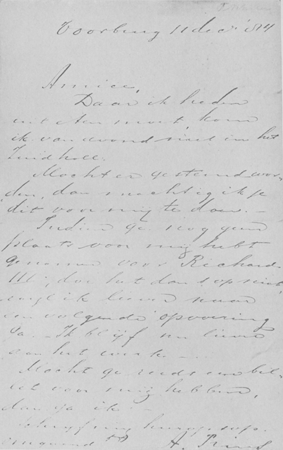 Voorburg 11 Dec 1874
Amice,
Daar ik heden
uit eten moet kom
ik van avond niet in het
Zuid holl.
Mocht er gestemd wor-
den, dan machtig ik je
dit voor mij te doen. —
Indien ge nog geen
plaats voor mij hebt
genomen voor Richard
III, doe het dan s.v.p. niet
ik liever naar
een volgende opvoering
ga. Ik blijf nu liever
aan het werk. —
Mocht ge reeds een bil-
jet voor mij hebben,
dan ga ik. —